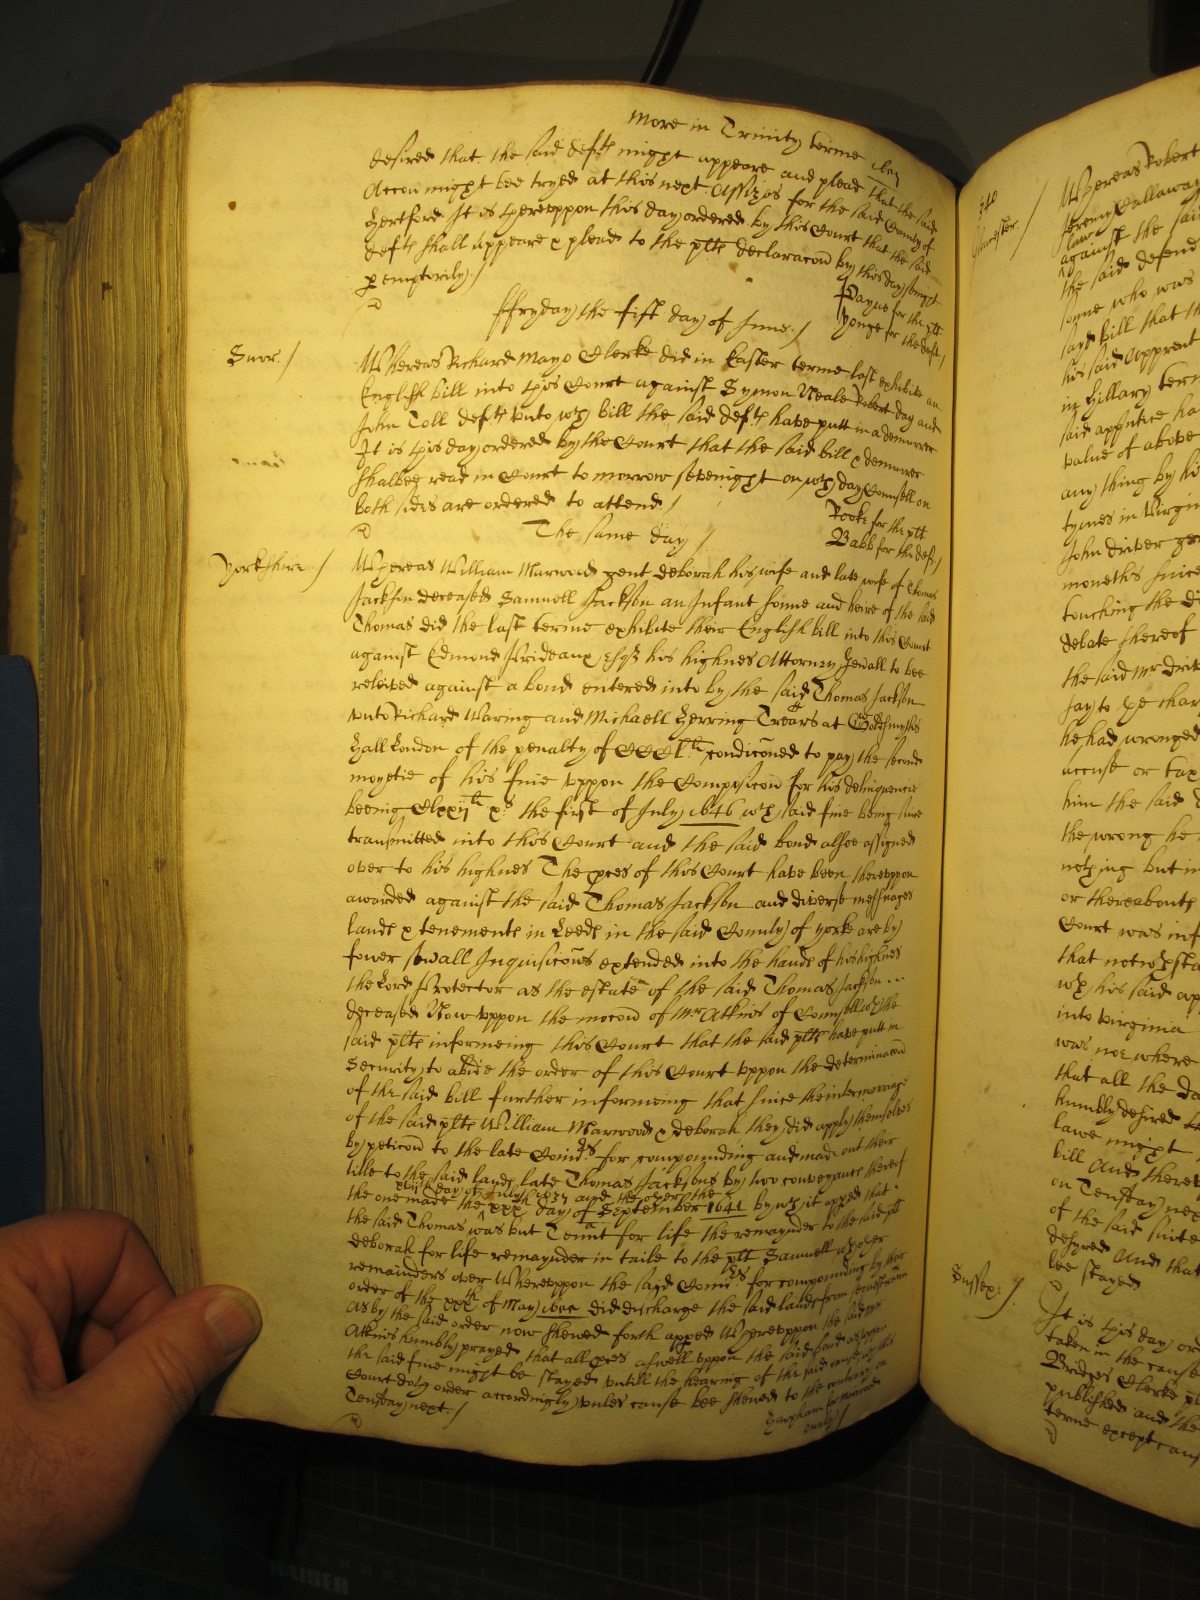 More in Trinity terme 1655
desired that the said defts might appeare and plead that the said
Accon might bee tryed at this next Assizes for the said County of
Hertford It is thereuppon this day ordered by this Court that the said
defts shall appeare & plead to the plts declaracon by this day senight
p emptorily /
Payne for the plt
Yonge for the deft /
ffryday the first day of June /
Surr /
Whereas Richard Mayo Clerke did in Easter terme last exhibite an
English bill into this Court against Symon Neale Robert Day and
John Toll defts unto wch bill the said defts have putt in a demurrer
It is this day ordered by the Court that the said bill & demurrer
shalbee read in Court to morrow sevenight on wch day Counsell on
both sides are ordered to attend /
Rooke for the plt
Babb for the defts /
The same day /
Yorkshire /
Whereas William Marwood gent deborah his wife and late wife of Thomas
Jackson deceased Samuell Jackson an Infant sonne and heire of the said
Thomas did the last terme exhibite their English bill into this Court
against Edmond Prideaux Esqr his highnes Attorney Genall to bee
releived against a bond entered into by the said Thomas Jackson
unto Richard Waring and Michaell Herring Trears at Goldsmyths
Hall London of the penalty of CCCl li condiconed to pay the second
moyetie of his fine uppon the Composicon for his delinquencie
beeing Clxxij li xs the first of July 1646 wch said fine being since
transmitted into this Court and the said bond alsoe assigned
over to his highnes The pces of this Court have been thereuppon
awarded against the said Thomas Jackson and diverse messuages
lands & tenements in Leeds in the said County of yorke are by
fower sevall Inquisicons extended into the hands of his highnes
the Lord Protector as the estate of the said Thomas Jackson
deceased Now uppon the mocon of Mr Atkins of Counsell wth the
said plts informeing this Court that the said plts have putt in
Security to abide the order of this Court uppon the determinacon
of the said bill further informeing that since the intermarriage
of the said plts William Marwood & deborah they did apply themselves
by peticon to the late Comrs for compounding and made out their
title to the said lands late Thomas Jacksons by two conveyances thereof
xviijth day of July 1637 and the other the
the one made the xxxth day of September 1641 by wch it apped that
the said Thomas was but Tennt for life the remaynder to the said plt
deborah for life remaynder in taile to the plt Samuell wth other
remainders over Whereuppon the said Comrs for compounding by their
order of the xxxth of May did discharge the said lands from sequestracon
As by the said order now shewed forth apped Whereuppon the said Mr
Atkins humbly prayed that all pces aswell uppon the said bond as uppon
the said fine might be stayed untill the hearing of the said cause wch this
Court doth order accordingly unles cause bee shewed to the contrary on
Tuesday next /
240
Glocester /
Whereas Robert
Jeremy Callaway
lawe
against the said
the said defend
sonne who was
said bill that th
his said Apprent
in Hillary term
said appntice ha
value of above
any thing by hi
tymes in Virgin
John driver gen
moneths since
touching the di
debate thereof
the said Mr driv
say to
he had wronged
accuse or tax
him the said
the wrong he
nothing but in
or thereabouts
Court was inf
that notwthsta
wth his said ap
into Virginia
was not where
that all the
humbly desired
lawe might
bill And there
on Tuesday nex
of the said suite
desyred And that
bee stayed
Sussex /
It is this day or
taken in the cause
Bridges Clerke
published and the
terme except caus